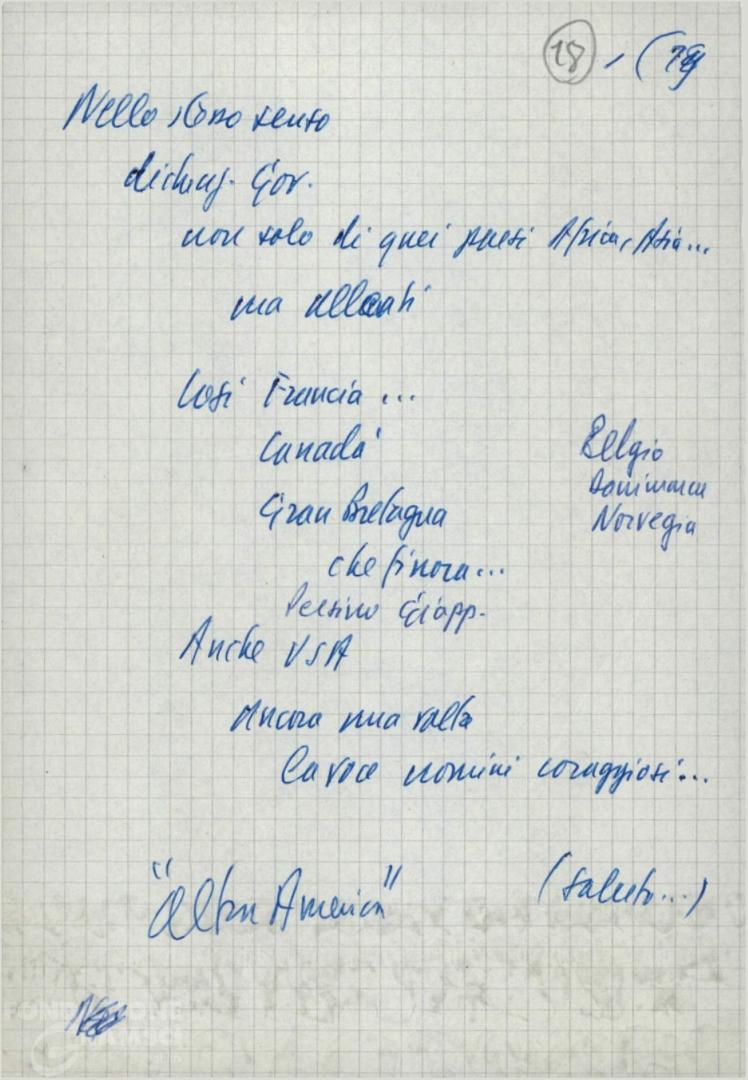 18
Nello stesso senso
dichiaj. Gov.
non solo di quei paesi Africa, Asia...
ma alleati
Così Francia ...
Canadà
Belgio
Danimarca
Gran Bretagna
Norvegia
che finora...
Persino Giapp.
Anche USA
Ancora una volta
la voce uomini coraggiosi...
"altra America"
(saluto...)
FONDAZIONE
GRAMSCI